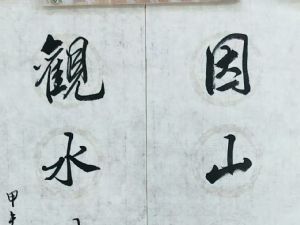 因山
觀水
甲午